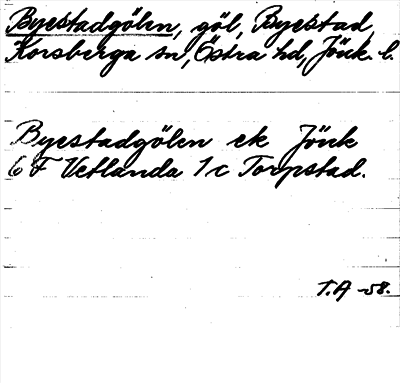 Byestadgölen, göl, Byestad,
Korsberga sn, Östra hd, Jönk. l.
Byestadgölen ek Jönk
6 F Vetlanda 1 c Torpstad.
T.A -58.